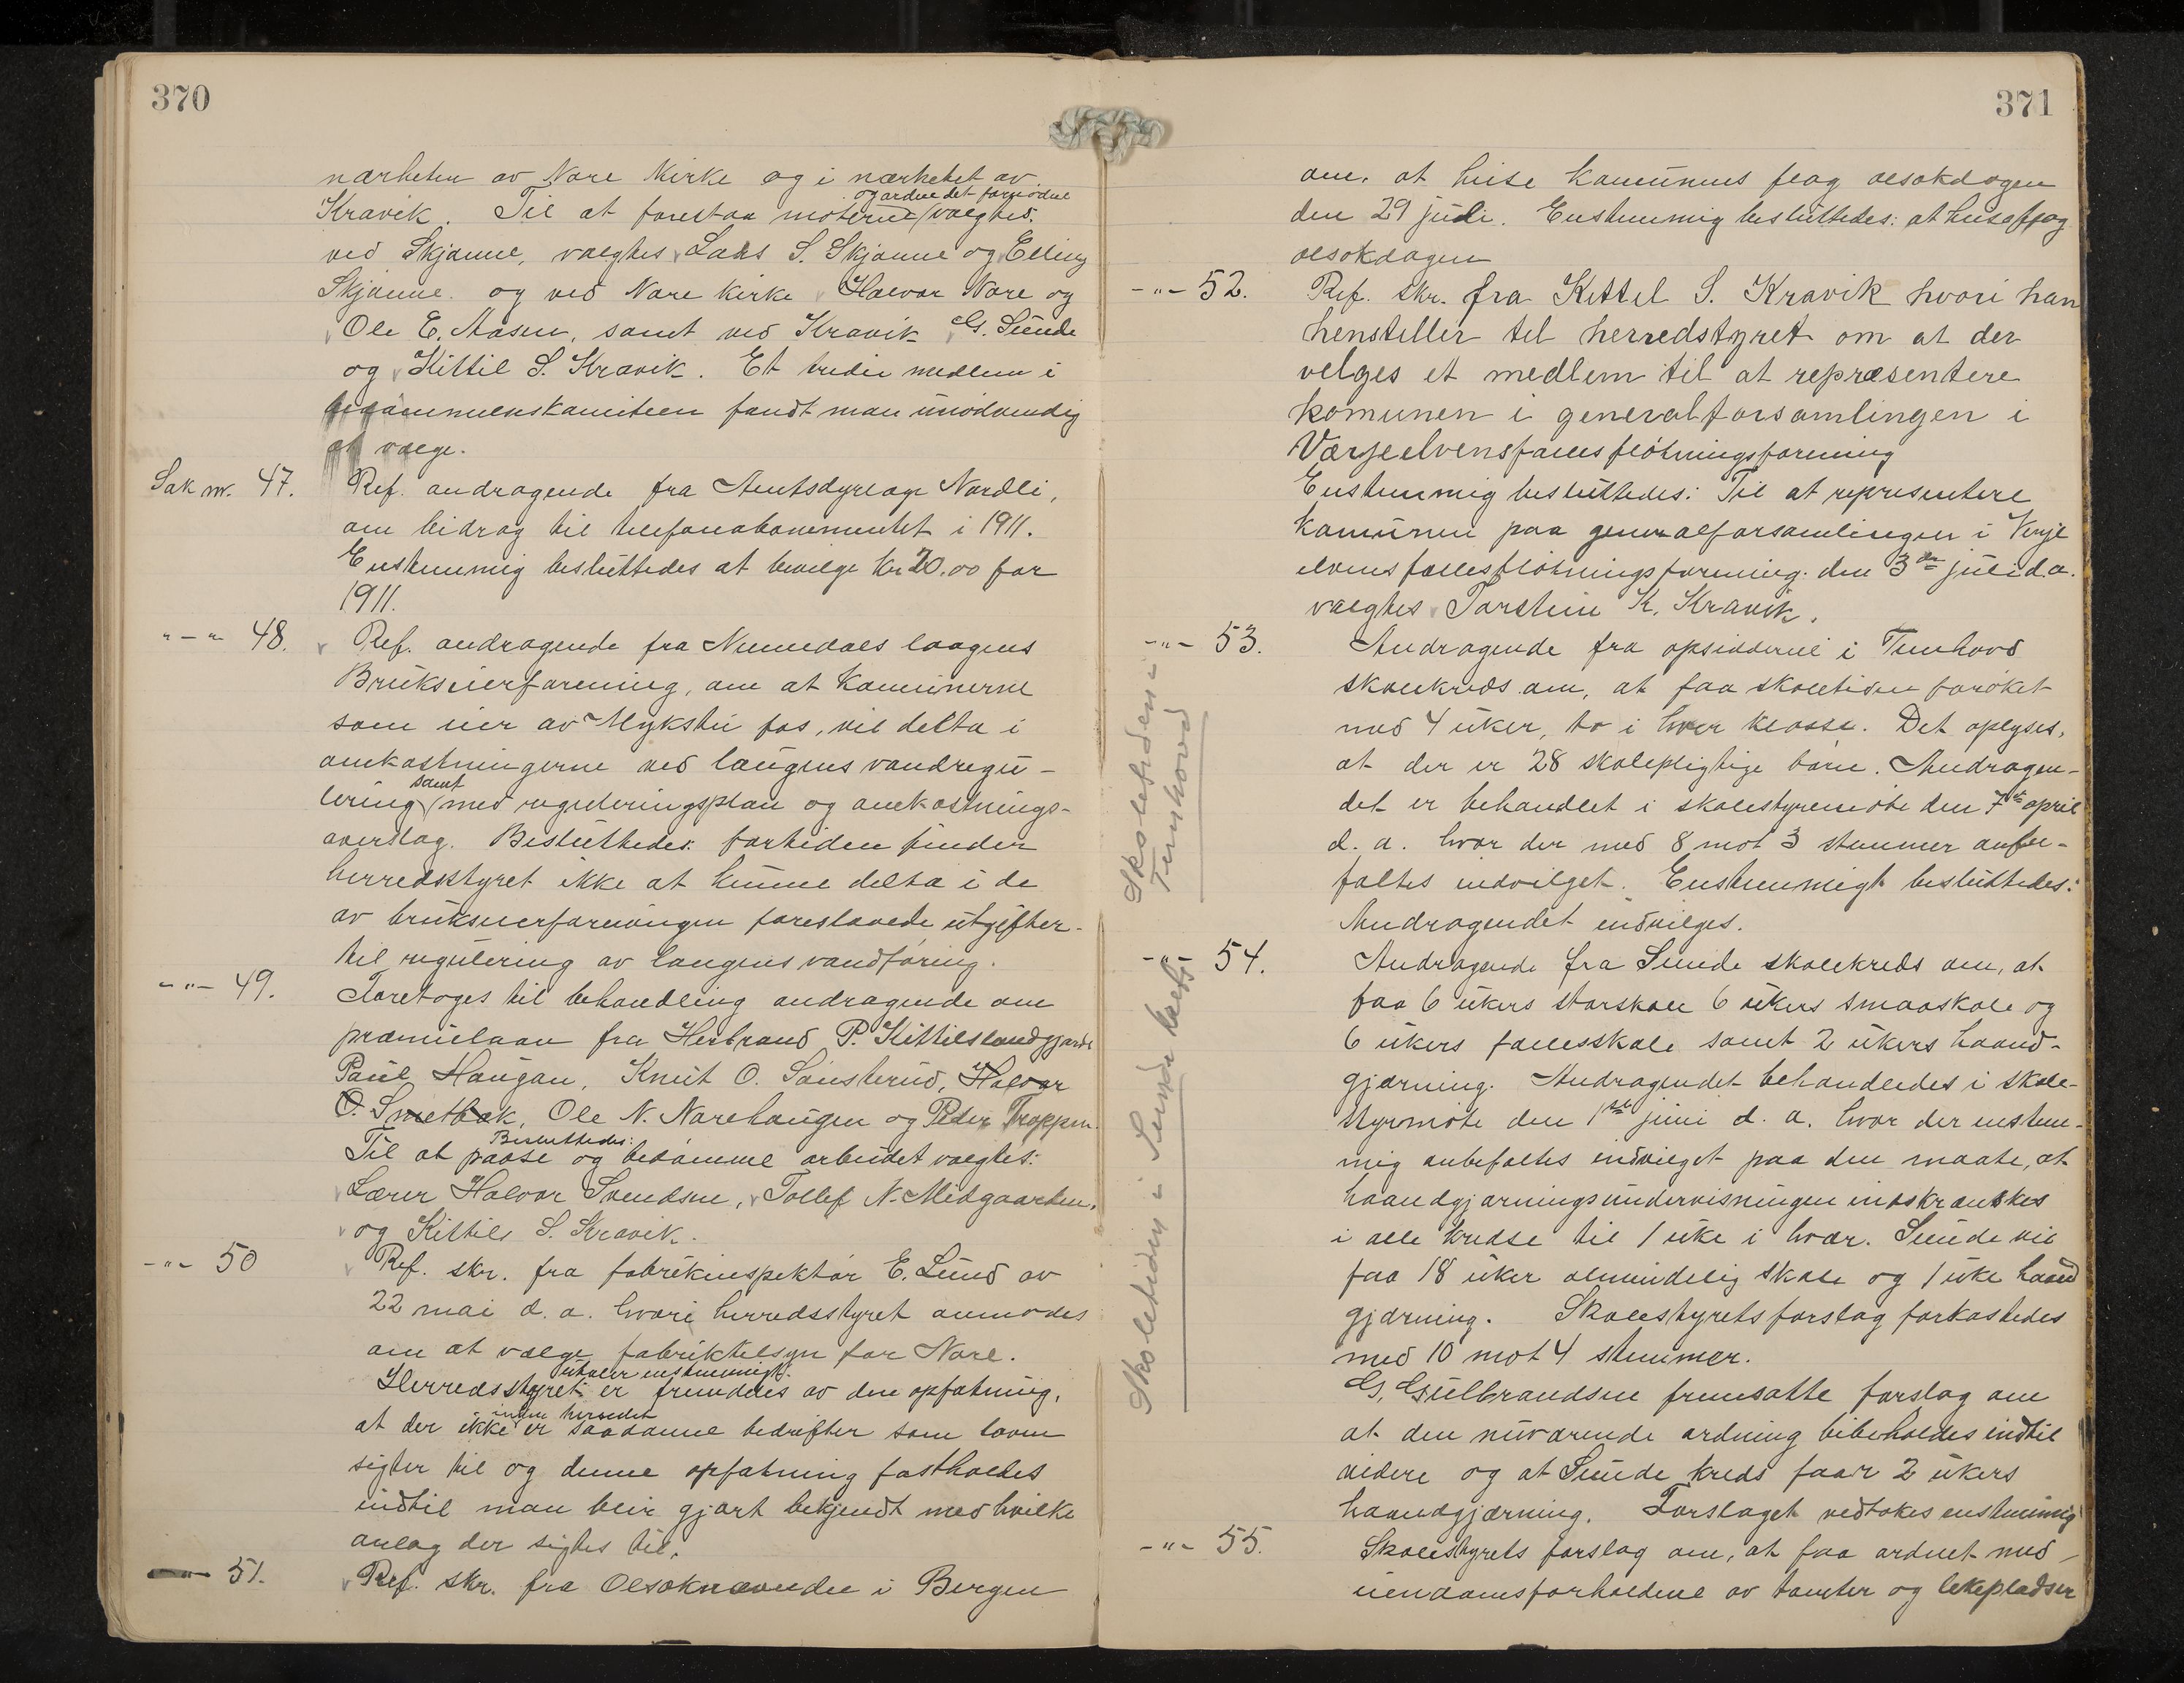 370
nærheten av Nore Kirke og i nærhetet av
og ordne det fornødne
Kravik. Til at forestaa møterne valgtes.
ved Skjønne, valgtes Lars S. Skjønne og Elling
Skjønne. og ved Nore kirke Halvor Nore og
Ole E. Aasen, samt ved Kravik G. Sunde
og Kittil S. Kravik. Et tredie medlem i
bedømmelseskomiteen fandt man unødvendig
at vælge.
Sak nr. 47. Ref. andragende fra Amtsdyrlæge Nordli,
om bidrag til telefonabonnementet i 1911.
Enstemmig besluttedes at bevilge kr 20.00 for
1911.
" — " 48. Ref. andragende fra Numedals laagens
Brukseierforening, om at Kommunerne
som eier av Mykstu fos, vil delta i
omkostningerne ved laugens vandregu-
samt
lering med reguleringsplan og omkostnings-
overslag. Besluttedes: fortiden finder
herredsstyret ikke at kunne delta i de
av brukseierforeningen foreslaaede utgifter
til regulering av laugens vandføring.
- " - 49. Foretoges til behandling andragende om
præmielaan fra Herbrand P. Kittilslandgjorde
Paul Haugan, Knut O. Sønsterud, Halvor
O. Smetbak, Ole N. Norehaugen og Peder Troppen.
Besluttedes:
Til at paase og bedømme arbeidet valgtes:
Lærer Halvor Svendsen, Tollef N. Midgaarden,
og Kittil S. Kravik.
- " - 50 Ref. skr. fra fabrikinspektør E. Lund av
22 mai d. a. hvori herredsstyret anmodes
om at vælge fabriktilsyn for Nore.
uttaler enstemmigt.
Herredsstyret er fremdeles av den opfatning,
inden herredet
at der ikke er saadanne bedrifter som loven
sigter til og denne opfatning fastholdes
indtil man blir gjort bekjendt med hvilke
anlæg der sigtes til.
51. Ref. skr. fra Olsoknævnden i Bergen
371
om, at heise kommunens flag olsokdagen
den 29 juli. Enstemmig besluttedes: at heise flag
olsokdagen
- " - 52. Ref. skr. fra Kittel S. Kravik hvori han
henstiller til herredstyret om at der
velges et medlem til at repræsentere
komunen i generalforsamlingen i
Værjeelvensfællesfløtningsforening
Enstemmig besluttedes: Til at representere
Kommunen paa generalforsamlingen i Verje
elvens fællesfløtningsforening. den 3die juli d.a.
valgtes Torstein K. Kravik.
- " - 53. Andragende fra opsidderne i Tunhovd
skolekreds om, at faa skoletiden forøket
med 4 uker, to i hver klasse. Det oplyses,
at der er 28 skolepligtige barn. Andragen-
det er behandlet i skolestyremøte den 7de april
d. a. hvor der med 8 mot 3 stemmer anbe-
faltes indvilget. Enstemmigt besluttedes:
Andragendet indvilges.
Skoletiden i
Tunhovd
- " - 54. Andragende fra Sunde skolekreds om, at
faa 6 ukers storskole 6 ukers smaaskole og
6 ukers fællesskole samt 2 ukers haand-
gjerning. Andragendet behandledes i skole-
styrmøte den 1ste juni d. a. hvor der enstem-
mig anbefaltes indvilget paa den maate, at
haandgjerningsundervisningen indskrænkes
i alle kredse til 1 uke i hver. Sunde vil
faa 18 uker almindelig skole og 1 uke haand
gjerning. Skolestyrets forslag forkastedes
med 10 mot 4 stemmer.
G. Gulbrandsen fremsatte forslag om
at den nuværende ordning bibeholdes indtil
videre og at Sunde kreds faar 2 ukers
haandgjerning. Forslaget vedtokes enstemmig
Skoletiden i Sunde kreds
- " - 55. Skolestyrets forslag om, at faa ordnet med
eiendomsforholdene av tomter og lekepladser